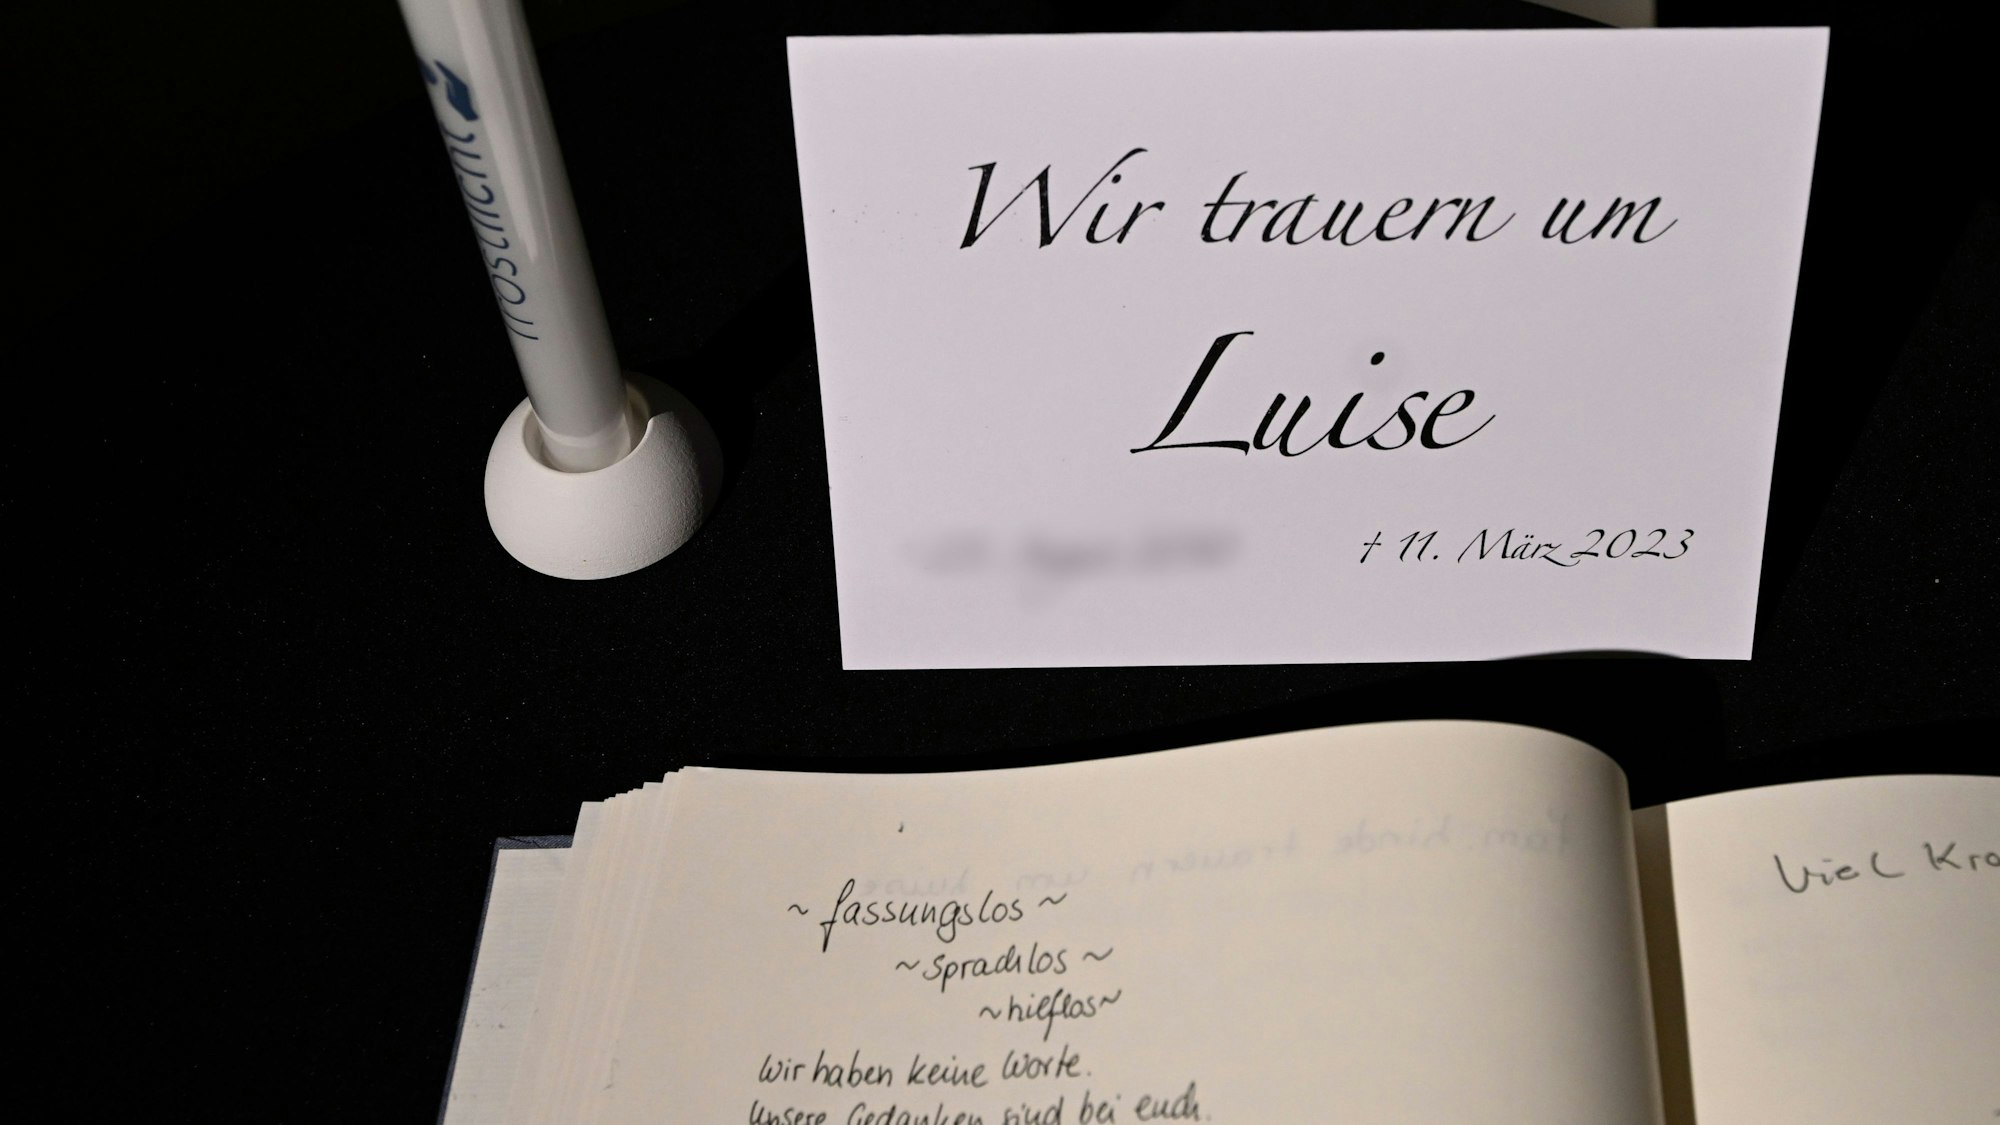 Trostlicht
Wir trauern um
Luise
† 11. März 2023
~ fassungslos ~
~ sprachlos ~
~ hilflos ~
Wir haben keine Worte.
Unsere Gedanken sind bei euch.
Viel